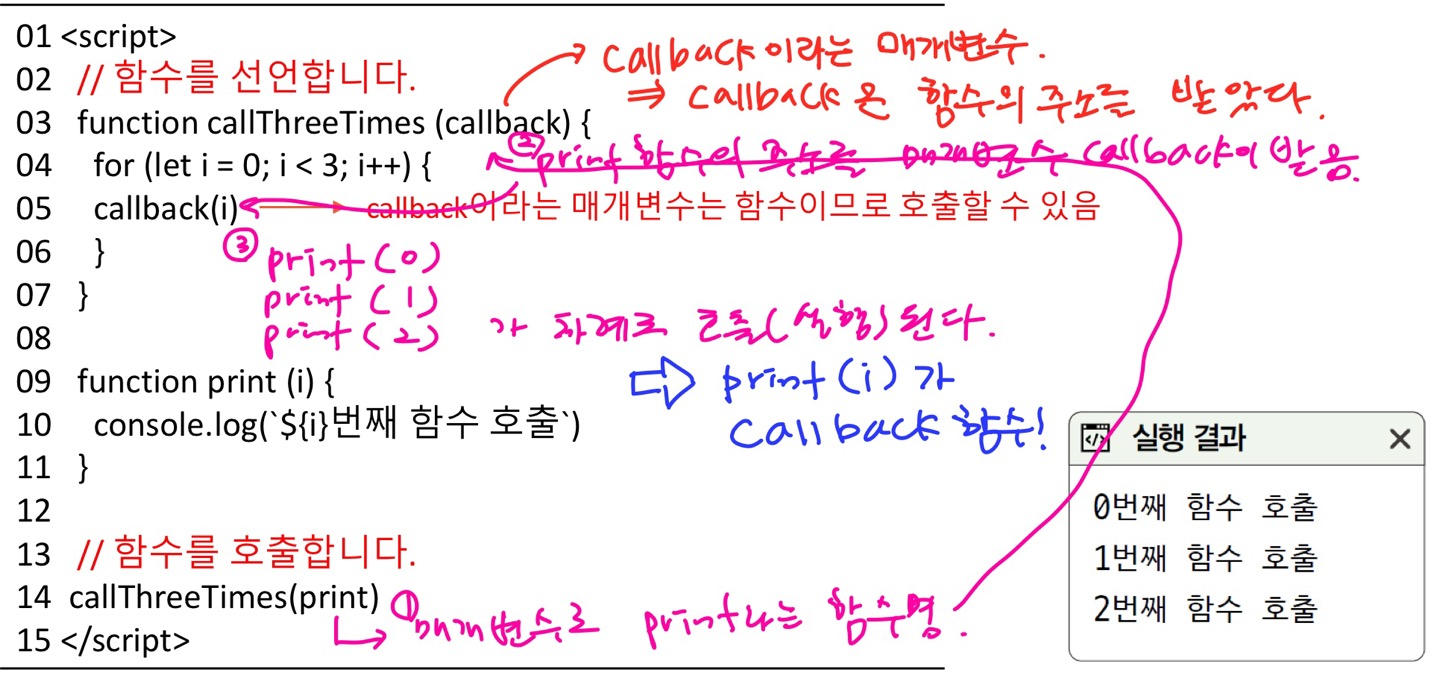 01 <script>
02 // 함수를 선언합니다.
callback이라는 매개변수.
⇒ callback은 함수의 주소를 받았다.
03 function callThreeTimes (callback) {
② print 함수의 주소를 매개변수 callback이 받음.
04 for (let i = 0; i < 3; i++) {
05 callback(i) callback이라는 매개변수는 함수이므로 호출할 수 있음
06 }
③ print(0)
07 }
print(1)
08
print(2) 가 차례로 호출(실행)된다.
09 function print (i) {
⇨ print(i)가
10 console.log(`${i}번째 함수 호출`)
callback 함수!
11 }
12
13 // 함수를 호출합니다.
14 callThreeTimes(print)
① 매개변수로 print라는 함수명.
15 </script>
실행 결과
0번째 함수 호출
1번째 함수 호출
2번째 함수 호출